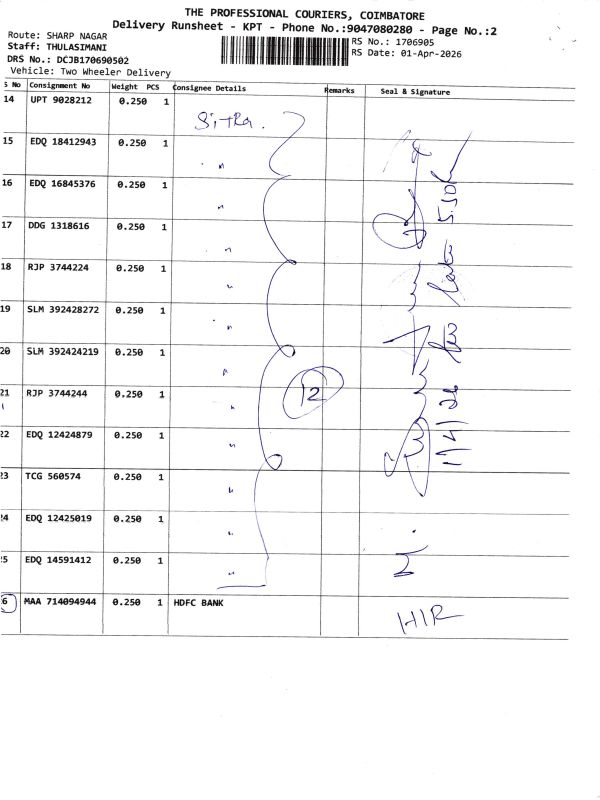 THE PROFESSIONAL COURIERS, COIMBATORE
Delivery Runsheet - KPT - Phone No.:9047080280 - Page No.:2
Route: SHARP NAGAR
Staff: THULASIMANI
DRS No.: DCJB170690502
Vehicle: Two Wheeler Delivery
RS No.: 1706905
RS Date: 01-Apr-2026
S No Consignment No Weight PCS Consignee Details Remarks Seal & Signature
14 UPT 9028212 0.250 1 Sitra.
15 EDQ 18412943 0.250 1 "
16 EDQ 16845376 0.250 1 "
17 DDG 1318616 0.250 1 "
18 RJP 3744224 0.250 1 "
19 SLM 392428272 0.250 1 "
20 SLM 392424219 0.250 1 "
21 RJP 3744244 0.250 1 "
22 EDQ 12424879 0.250 1 "
23 TCG 560574 0.250 1 "
24 EDQ 12425019 0.250 1 "
25 EDQ 14591412 0.250 1 "
26 MAA 714094944 0.250 1 HDFC BANK HIR
12
1/4/26